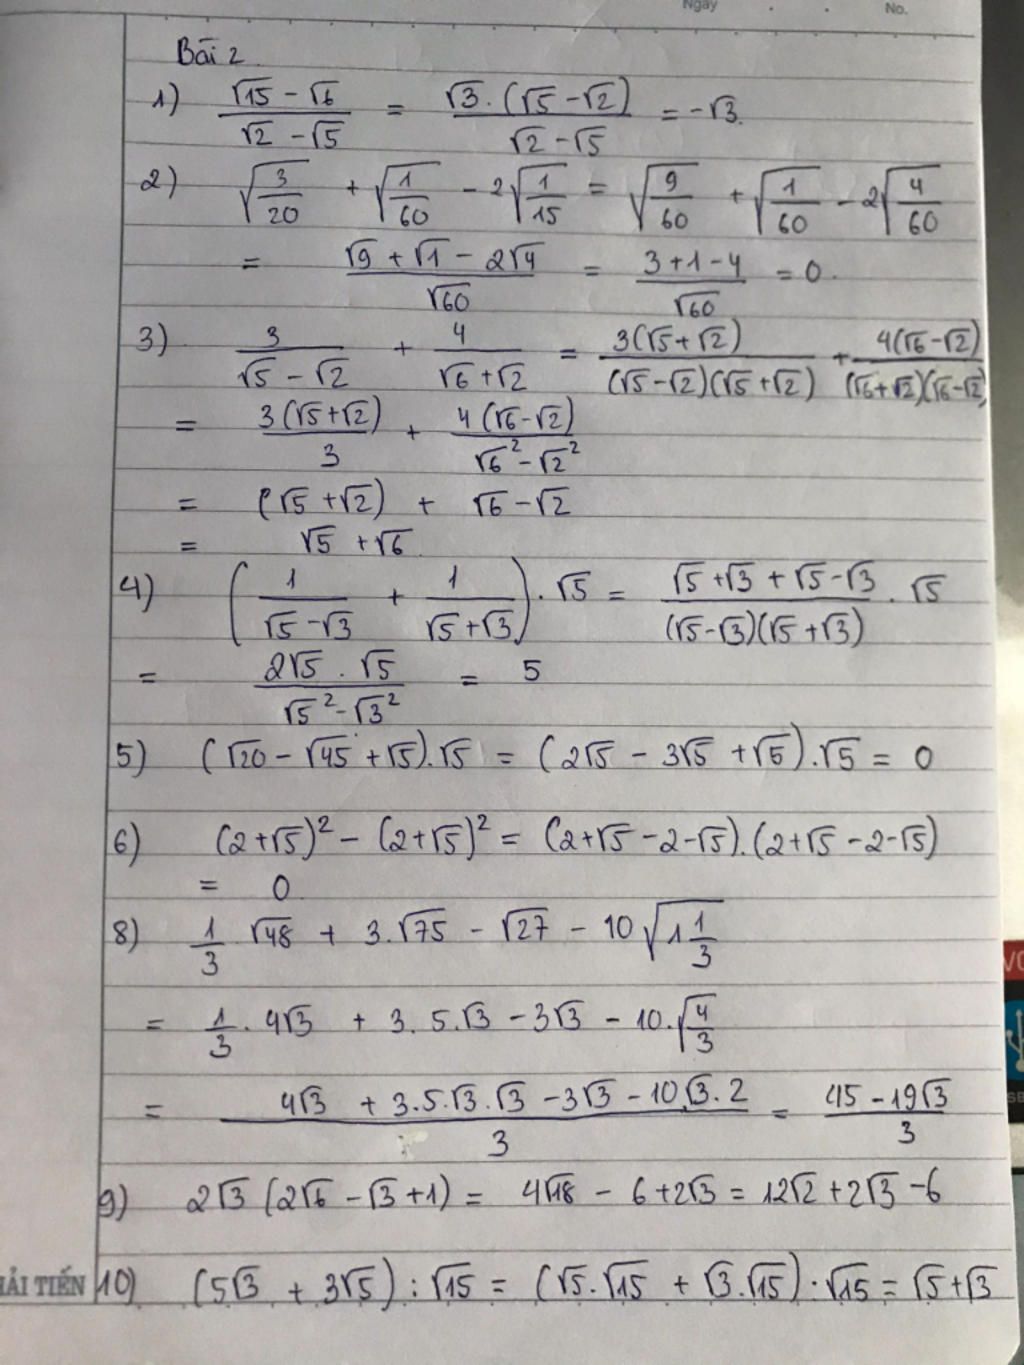 Ngày No.
Bài 2
1) (√15 - √6)/(√2 - √5) = (√3.(√5 - √2))/(√2 - √5) = -√3.
2) √(3/20) + √(1/60) - 2√(1/15) = √(9/60) + √(1/60) - 2√(4/60)
= (√9 + √1 - 2√4)/√60 = (3+1-4)/√60 = 0.
3) 3/(√5 - √2) + 4/(√6 + √2) = 3(√5 + √2)/((√5 - √2)(√5 + √2)) + 4(√6 - √2)/((√6 + √2)(√6 - √2)
= 3(√5 + √2)/3 + 4(√6 - √2)/(√6² - √2²)
= (√5 + √2) + √6 - √2
= √5 + √6.
4) (1/(√5 - √3) + 1/(√5 + √3)).√5 = (√5 + √3 + √5 - √3)/((√5 - √3)(√5 + √3)) . √5
= (2√5 . √5)/(√5² - √3²) = 5
5) (√20 - √45 + √5).√5 = (2√5 - 3√5 + √5).√5 = 0
6) (2+√5)² - (2+√5)² = (2+√5 - 2 - √5).(2+√5 - 2 - √5)
= 0
8) 1/3 √48 + 3.√75 - √27 - 10√(1 1/3)
= 1/3 . 4√3 + 3. 5.√3 - 3√3 - 10.√(4/3)
= (4√3 + 3.5.√3.√3 - 3√3 - 10.√3.2)/3 = (45 - 19√3)/3
9) 2√3 (2√6 - √3 + 1) = 4√18 - 6 + 2√3 = 12√2 + 2√3 - 6
HẢI TIẾN 10) (5√3 + 3√5) : √15 = (√5.√15 + √3.√15) . √15 = √5 + √3